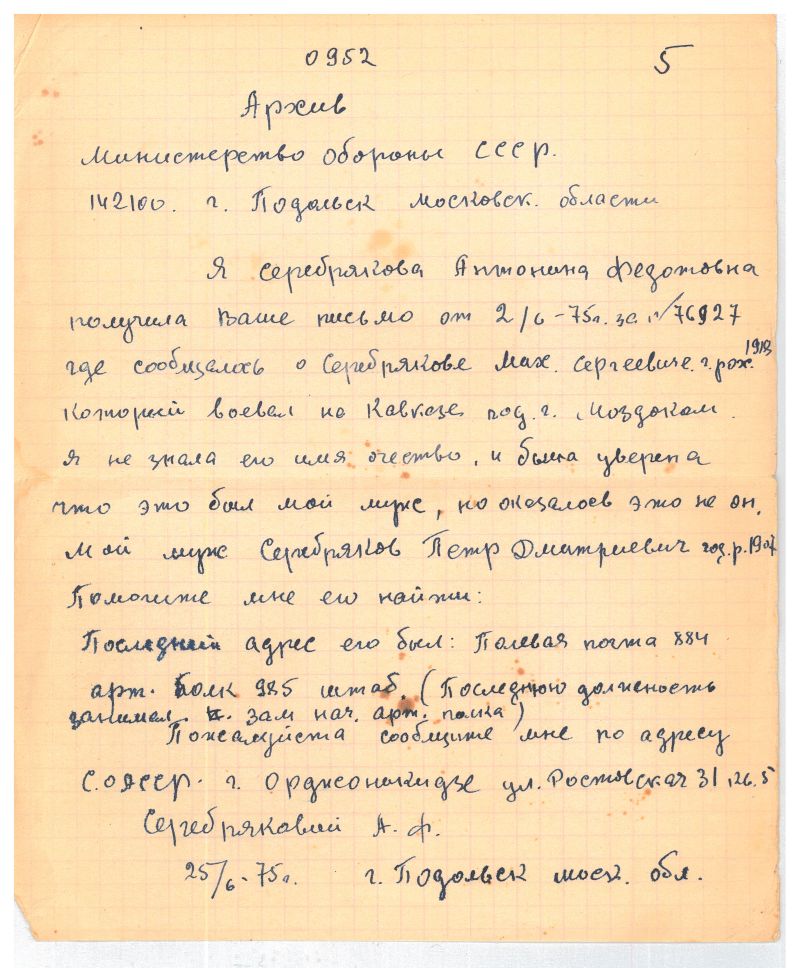 0952
5
Архив
Министерство обороны СССР.
142100. г. Подольск Московск. области
Я Серебрякова Антонина Федотовна
получила Ваше письмо от 2/6-75г. за №76927
где сообщалось о Серебрякове Мих. Сергеевиче. г. рож. 1913
который воевал на Кавказе под. г. Моздоком.
Я не знала его имя очество, и была уверена
что это был мой муж, но оказалоев это не он.
Мой муж Серебряков Петр Дмитриевич год. р. 1907
Помогите мне его найти:
Последний адрес его был: Полевая почта 884
арт. Полк 985 штаб. (Последнюю должность
занимал. зам нач. арт. полка)
Пожалуйста сообщите мне по адресу
С.ОАССР. г. Орджоникидзе ул. Ростовская 31 кв. 5
Серебряковий А. Ф.
25/6-75г. г. Подольск моск. обл.